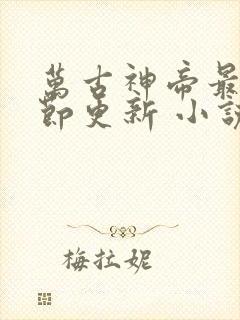 萬古神帝最
節更新 小說
梅拉妮